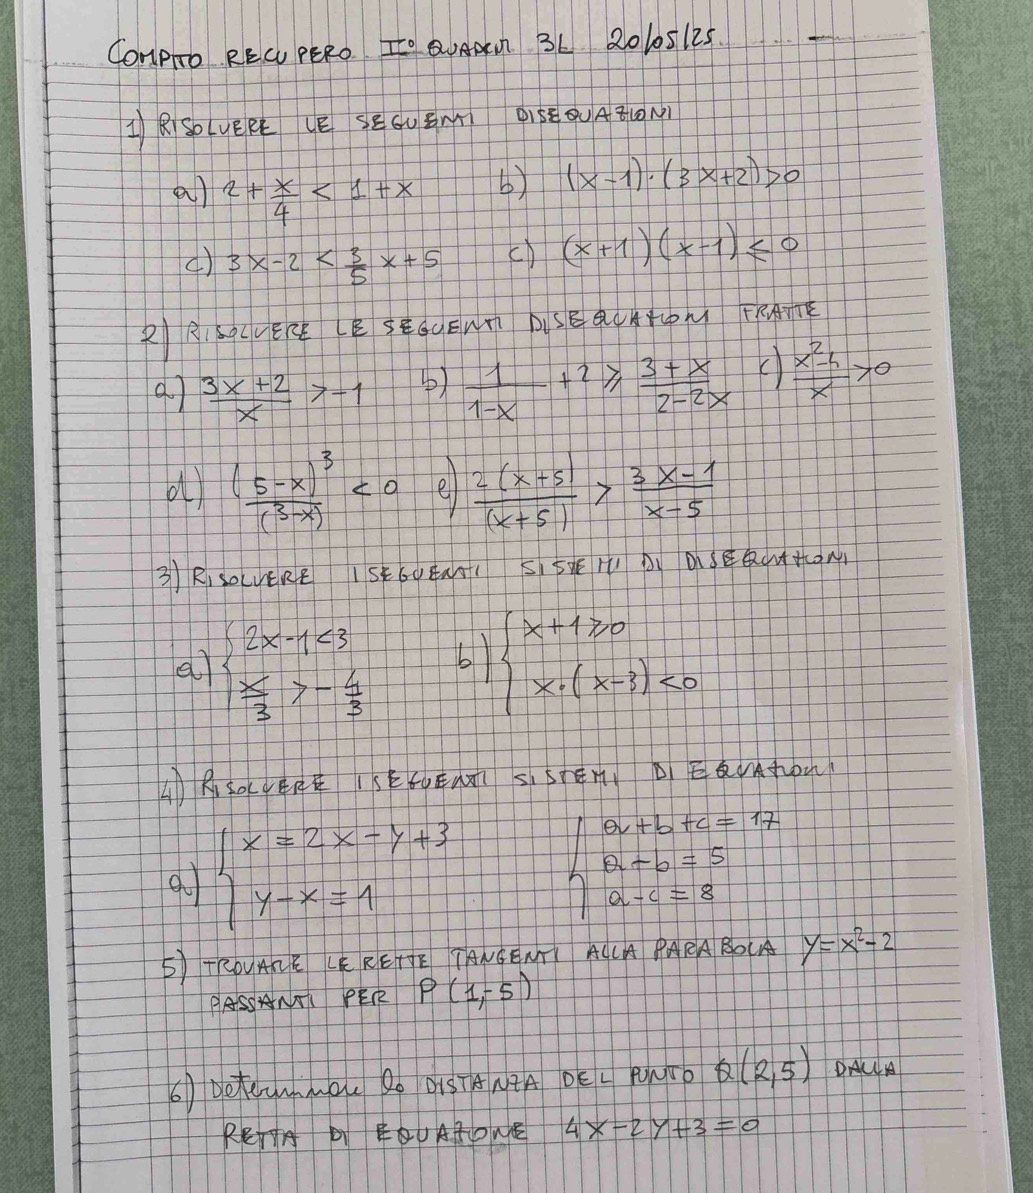 COMPITO RECUPERO II° QUADRIM 3L 20/05/25
1) RISOLVERE LE SEGUENTI DISEQUAZIONI
a) 2 + x/4 < 1 + x b) (x-1)·(3x+2)>0
c) 3x-2 < 3/5 x+5 c) (x+1)(x-1) ≤ 0
2) RISOLVERE LE SEGUENTI DISEQUAZIONI FRATTE
a) (3x+2)/x > -1 b) 1/(1-x) + 2 ≥ (3+x)/(2-2x) c) (x²-4)/x > 0
d) (5-x)³/(3-x) < 0 e) 2(x+5)/(x+5) > (3x-1)/(x-5)
3) RISOLVERE I SEGUENTI SISTEMI DI DISEQUAZIONI
a) { 2x-1<3 b) { x+1≥0
x/3 > -4/3 x·(x-3)<0
4) RISOLVERE I SEGUENTI SISTEMI DI EQUAZIONI
a) { x = 2x-y+3 { a+b+c = 17
y-x = 1 a+b = 5
a-c = 8
5) TROVARE LE RETTE TANGENTI ALLA PARABOLA y=x²-2
PASSANTI PER P(1,-5)
6) Determinare la DISTANZA DEL PUNTO Q(2,5) DALLA
RETTA DI EQUAZIONE 4x-2y+3=0